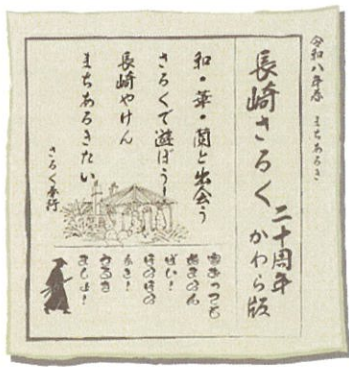 令和八年春 まちあるき
長崎さるく
二十周年
かわら版
和・華・蘭と出会う
さるくで遊ぼう!
長崎やけん
まちあるきたい
さるく奉行